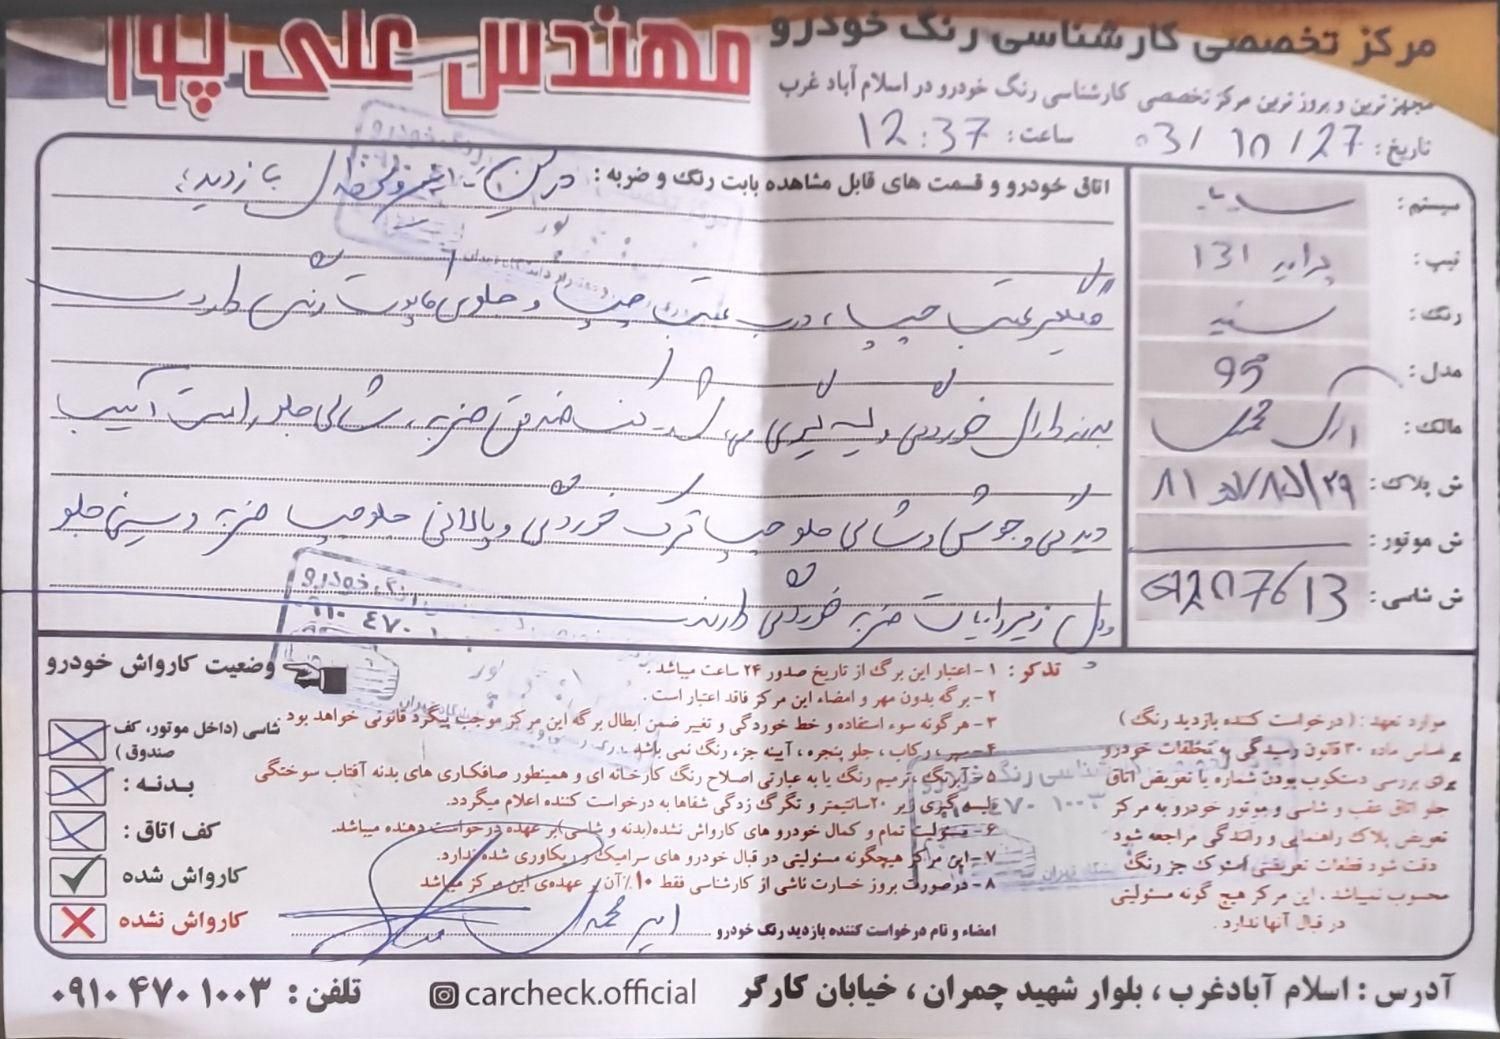 مرکز تخصصی کارشناسی رنگ خودرو مهندس علی پور
مجهزترین و بروزترین مرکز تخصصی کارشناسی رنگ خودرو در اسلام آباد غرب
تاریخ : 03/10/27 ساعت : 12:37
سیستم : سایپا
تیپ : پراید 131
رنگ : سفید
مدل : 95
مالک :
ش پلاک :
ش موتور :
ش شاسی :
اتاق خودرو و قسمت های قابل مشاهده بابت رنگ و ضربه : بازدید؛
گلگیر عقب چپ، درب عقب چپ و جلوی کاپوت رنگ دارد
بدنه دارای خوردگی و لیسه گیری می باشد کف صندوق ضربه، شالی جلو راست آسیب
دیدگی و جوش و شالی جلو چپ ترک خوردگی و پالانی جلو چپ ضربه و سینی جلو
و زیر رادیات ضربه خوردگی دارند
تذکر : ۱ - اعتبار این برگ از تاریخ صدور ۲۴ ساعت میباشد .
۲ - برگه بدون مهر و امضاء این مرکز فاقد اعتبار است .
۳ - هرگونه سوء استفاده و خط خوردگی و تغیر ضمن ابطال برگه این مرکز موجب پیگرد قانونی خواهد بود .
۴ - سپر ، رکاب ، جلو پنجره ، آیینه جزء رنگ نمی باشد
۵ - آبرنگ ، ترمیم رنگ یا به عبارتی اصلاح رنگ کارخانه ای و همینطور صافکاری های بدنه آفتاب سوختگی
لیسه گیری زیر ۲۰ سانتیمتر و تگرگ زدگی شفاها به درخواست کننده اعلام میگردد.
۶ - مسئولیت تمام و کمال خودرو های کارواش نشده(بدنه و شاسی)بر عهده درخواست دهنده میباشد.
۷ - این مرکز هیچگونه مسئولیتی در قبال خودرو های سرامیک و ریکاوری شده ندارد.
۸ - درصورت بروز خسارت ناشی از کارشناسی فقط ۱۰٪ آن بر عهده ی این مرکز میباشد
امضاء و نام درخواست کننده بازدید رنگ خودرو
موارد تعهد : ( درخواست کننده بازدید رنگ )
بر اساس ماده ۳۰ قانون رسیدگی به تخلفات خودرو
برای بررسی دستکوب بودن شماره یا تعویض اتاق
جلو اتاق عقب و شاسی و موتور خودرو به مرکز
تعویض پلاک راهنمایی و رانندگی مراجعه شود
دقت شود قطعات تعویضی استوک جز رنگ
محسوب نمیباشد ، این مرکز هیچ گونه مسئولیتی
در قبال آنها ندارد .
وضعیت کارواش خودرو
شاسی (داخل موتور، کف صندوق )
بدنه :
کف اتاق :
کارواش شده
کارواش نشده
آدرس : اسلام آبادغرب ، بلوار شهید چمران ، خیابان کارگر carcheck.official تلفن : ۰۹۱۰۴۷۰۱۰۰۳